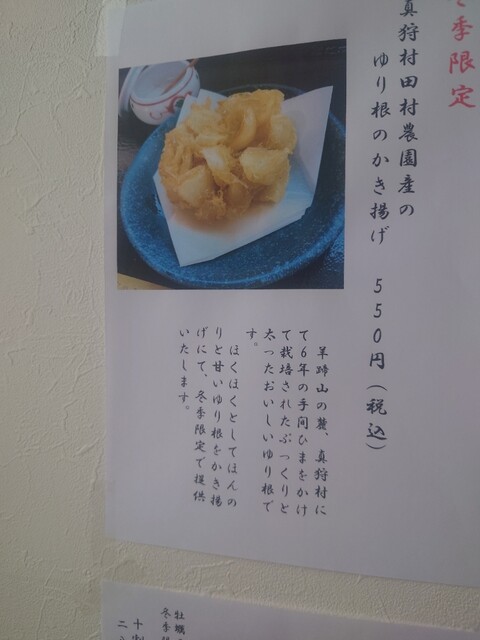 冬季限定
真狩村田村農園産の
ゆり根のかき揚げ　５５０円（税込）
羊蹄山の麓、真狩村に
て６年の手間ひまをかけ
て栽培されたぷっくりと
太ったおいしいゆり根で
す。
ほくほくとしてほんの
りと甘いゆり根をかき揚
げにて、冬季限定で提供
いたします。
牡蠣
冬季
十
二